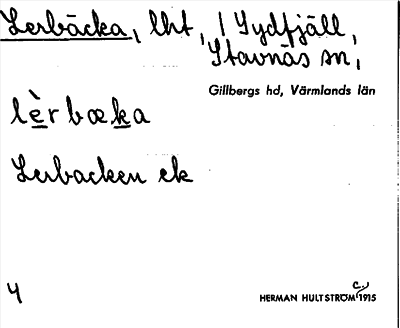 Lerbäcka, lht, / Sydfjäll,
Stavnäs sn,
Gillbergs hd, Värmlands län
lèrbæka
Lerbacken ek
4
HERMAN HULTSTRÖM c. 1915